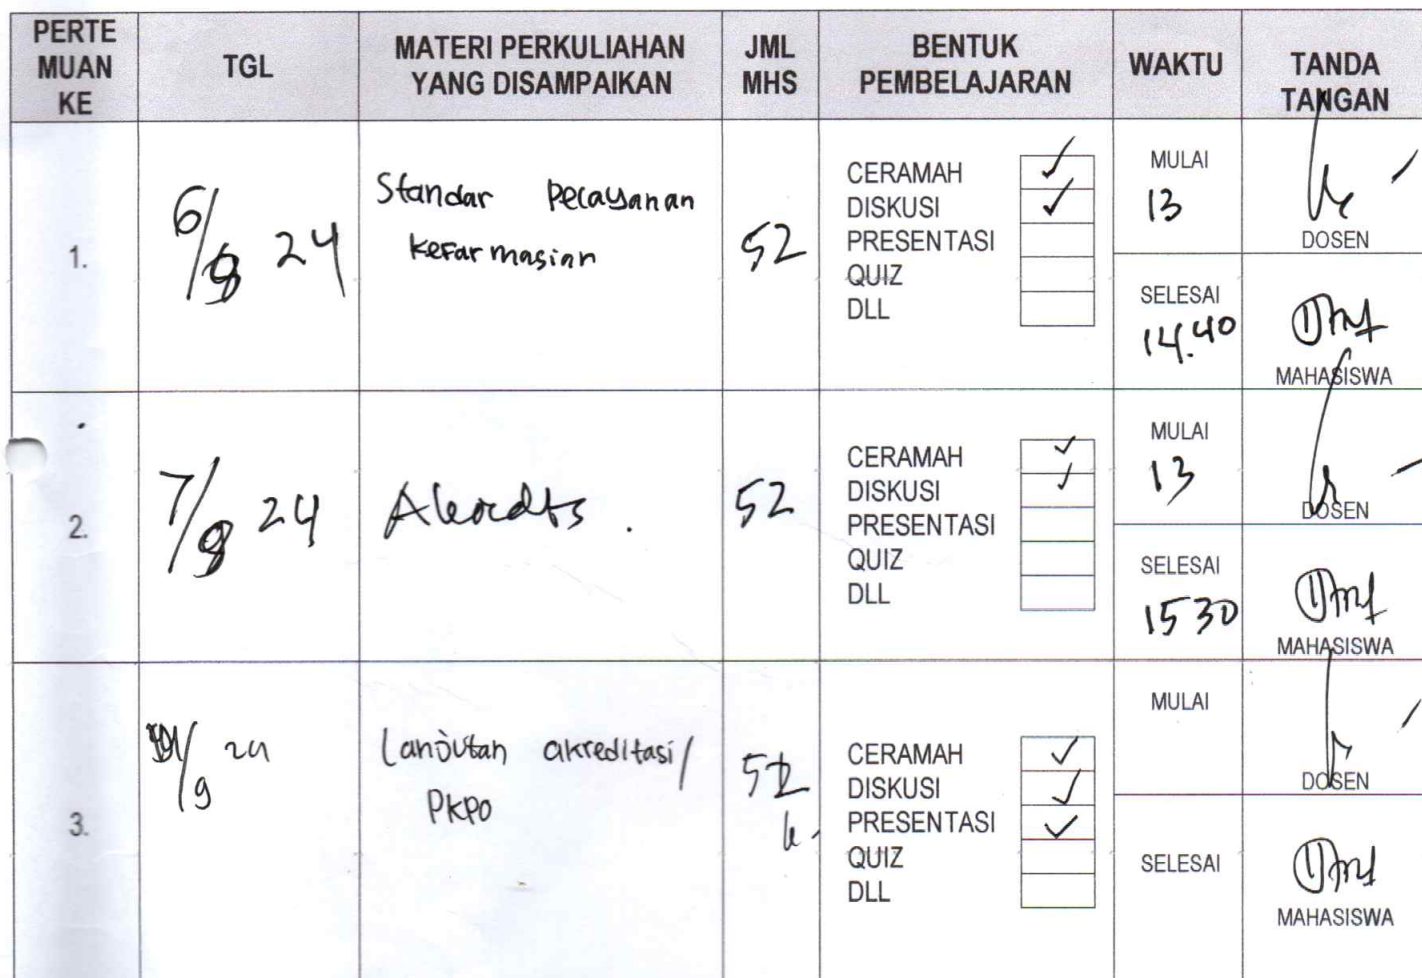 PERTE MUAN KE
TGL
MATERI PERKULIAHAN YANG DISAMPAIKAN
JML MHS
BENTUK PEMBELAJARAN
WAKTU
TANDA TANGAN
1.
6/9 24
Standar Pelayanan
kefarmasian
52
CERAMAH ✓
DISKUSI ✓
PRESENTASI
QUIZ
DLL
MULAI
13
SELESAI
14.40
DOSEN
MAHASISWA
2.
7/9 24
52
CERAMAH ✓
DISKUSI ✓
PRESENTASI
QUIZ
DLL
MULAI
13
SELESAI
15 30
DOSEN
MAHASISWA
3.
/9 24
Lanjutan akreditasi/
PKPO
52
CERAMAH ✓
DISKUSI ✓
PRESENTASI ✓
QUIZ
DLL
MULAI
SELESAI
DOSEN
MAHASISWA